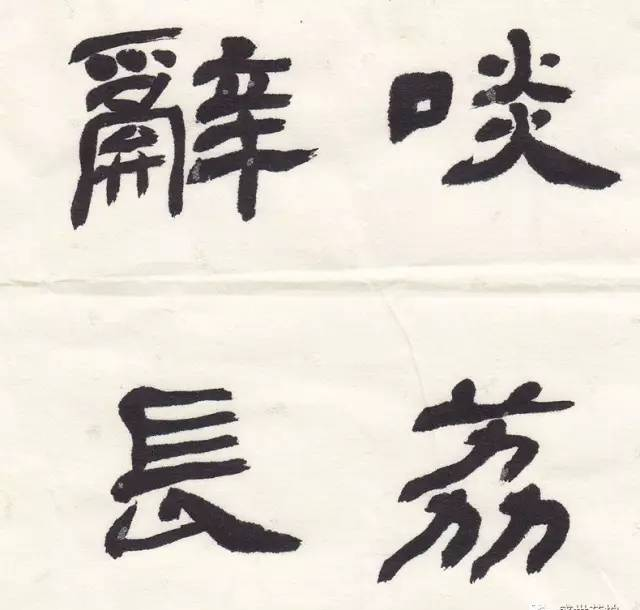 啖荔
辭長